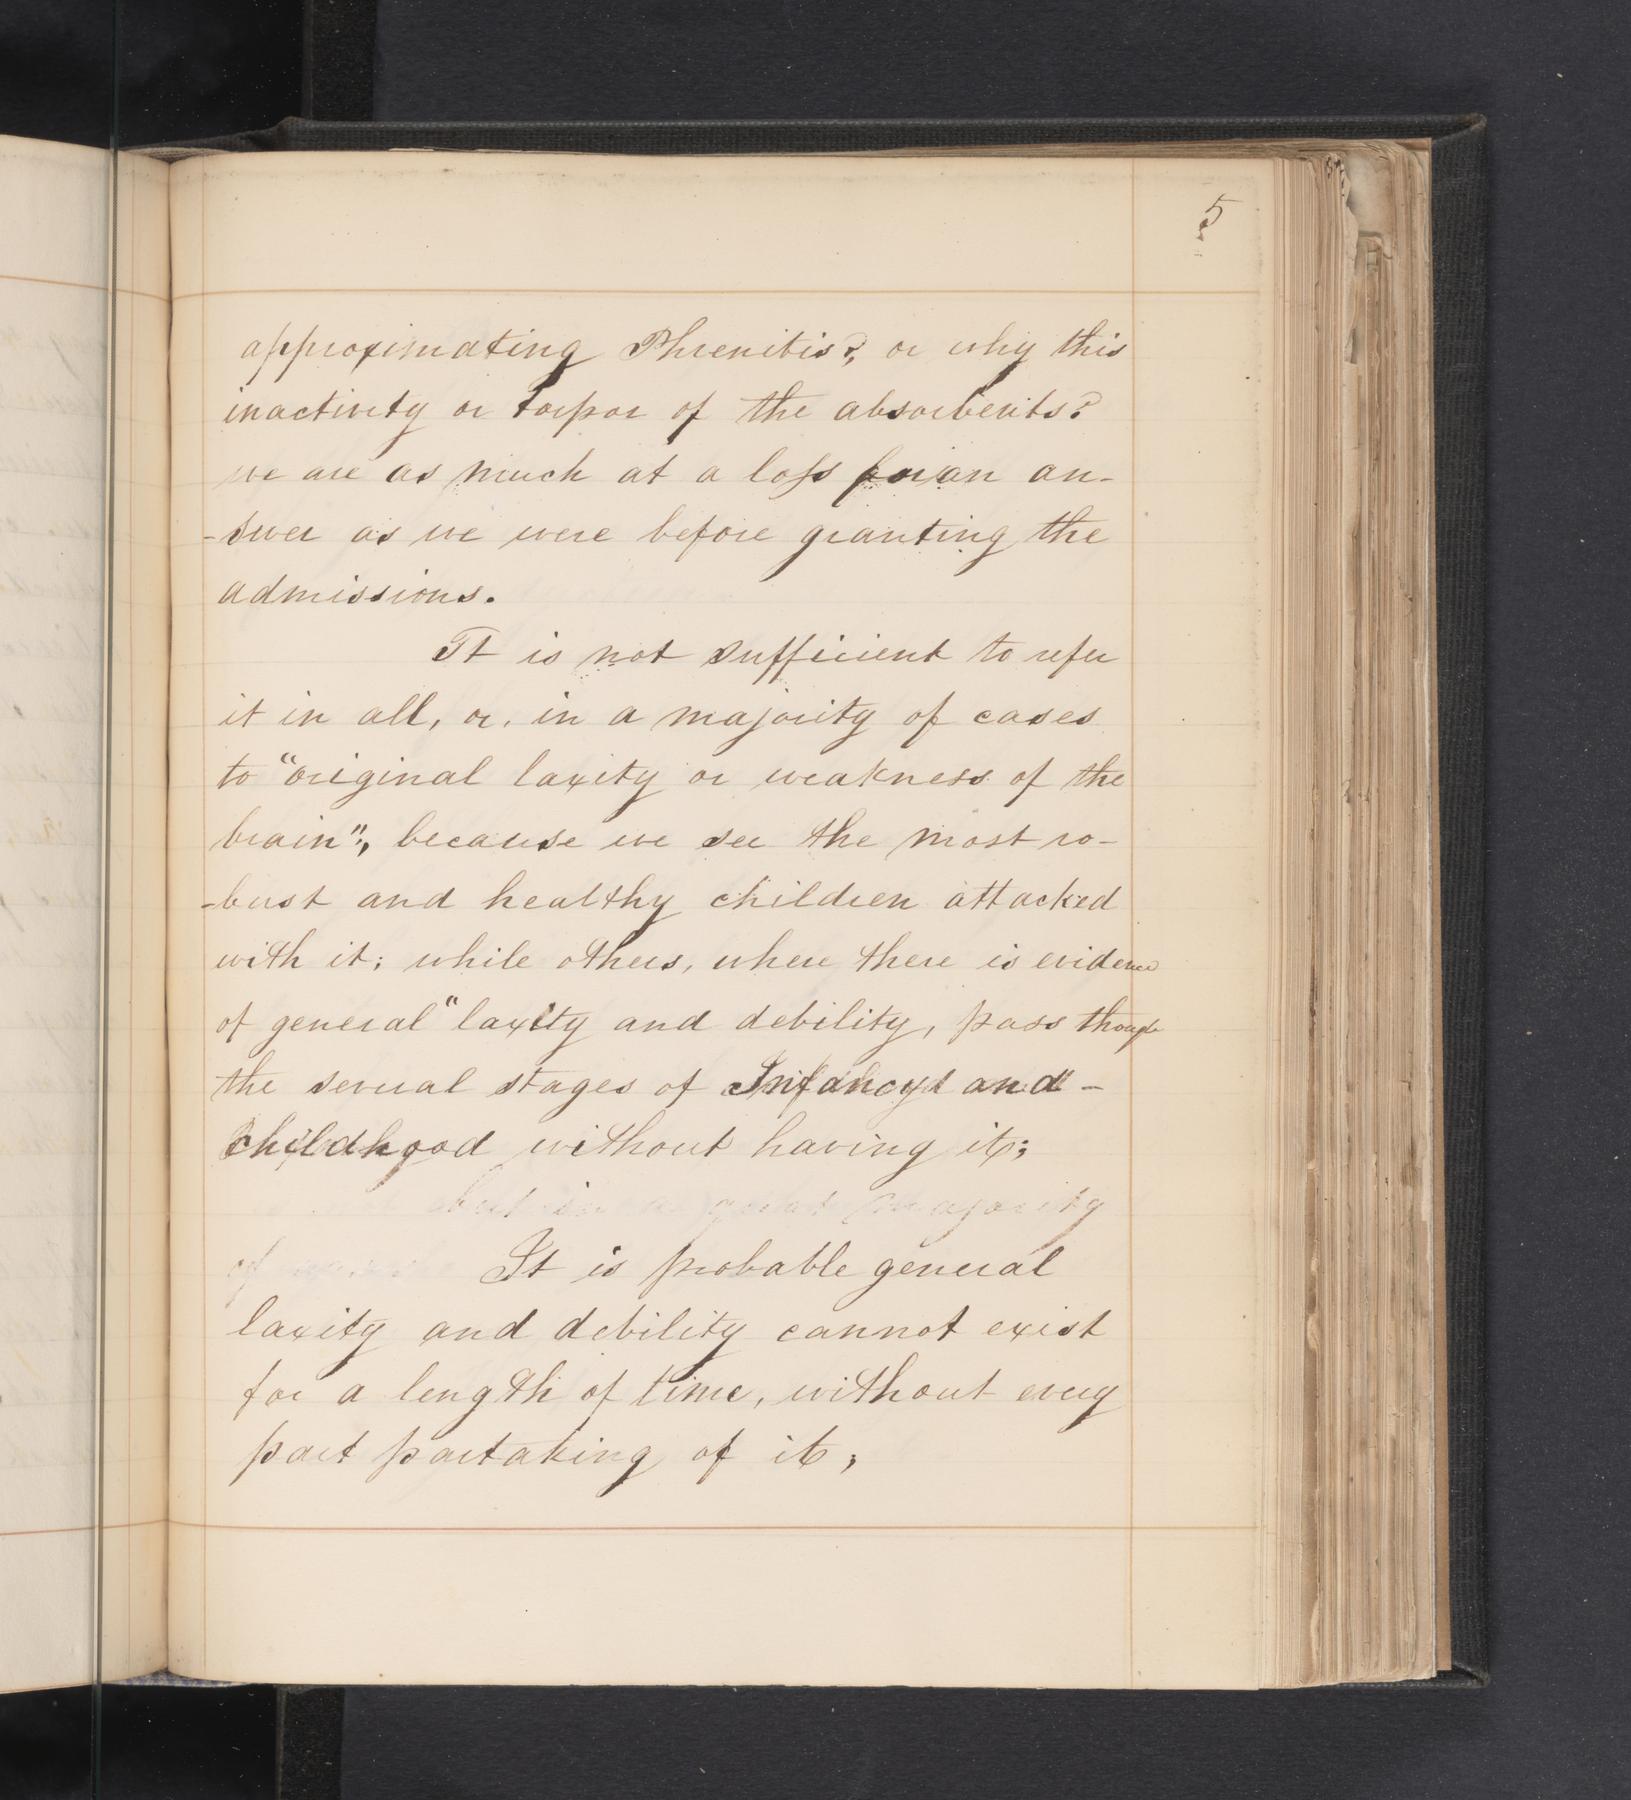 5
approximating Phrenitis?, or why this
inactivity or torpor of the absorbents?
we are as much at a loss for an an-
-swer as we were before granting the
admissions.
It is not sufficient to refer
it in all, or, in a majority of cases
to "original laxity or weakness of the
brain", because we see the most ro-
-bust and healthy children attacked
with it; while others, where there is evidence
of general "laxity and debility, pass though
the several stages of Infancy and -
childhood without having it;
but in a great majority
of
It is probable general
laxity and debility cannot exist
for a length of time, without every
part partaking of it;